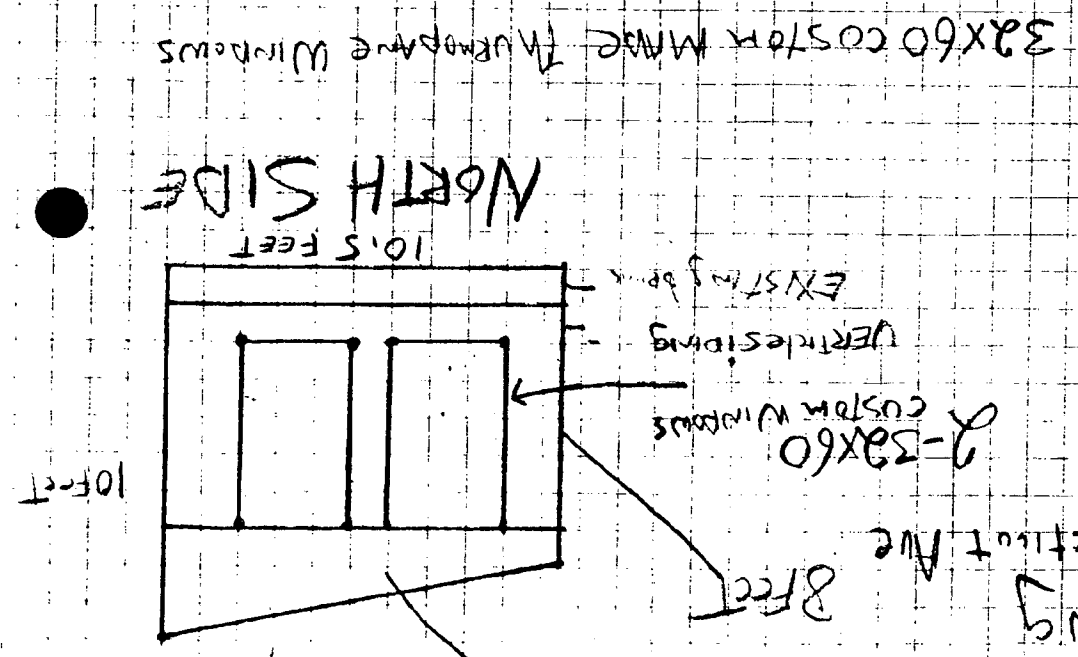 8 FEET
Ave
2-32X60
CUSTOM WINDOWS
10 FEET
VERTICLESIDING
EXISTING
10.5 FEET
NORTH SIDE
32X60 COSTOM MADE THURMOPANE WINDOWS